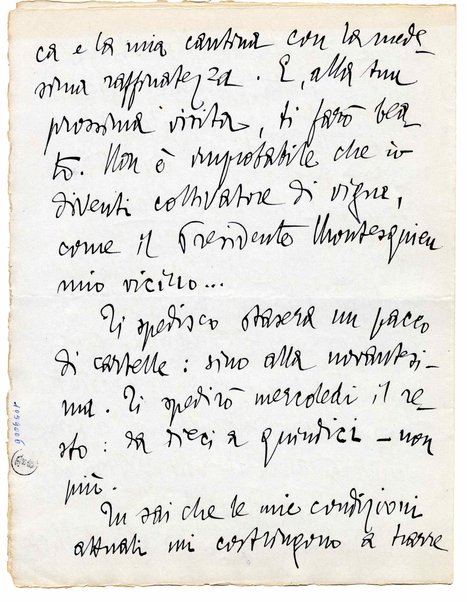 ca e la mia cantina con la mede-
sima raffinatezza. E, alla tua
prossima visita, ti farò bea-
to. Non è improbabile che io
diventi coltivatore di vigna,
come il Presidente Montesquieu
mio vicino...
Ti spedisco stasera un pacco
di cartelle: sino alla novantesi-
ma. Ti spedirò mercoledì il re-
sto: da dieci a quindici – non
più.
Tu sai che le mie condizioni
attuali mi costringono a trarre